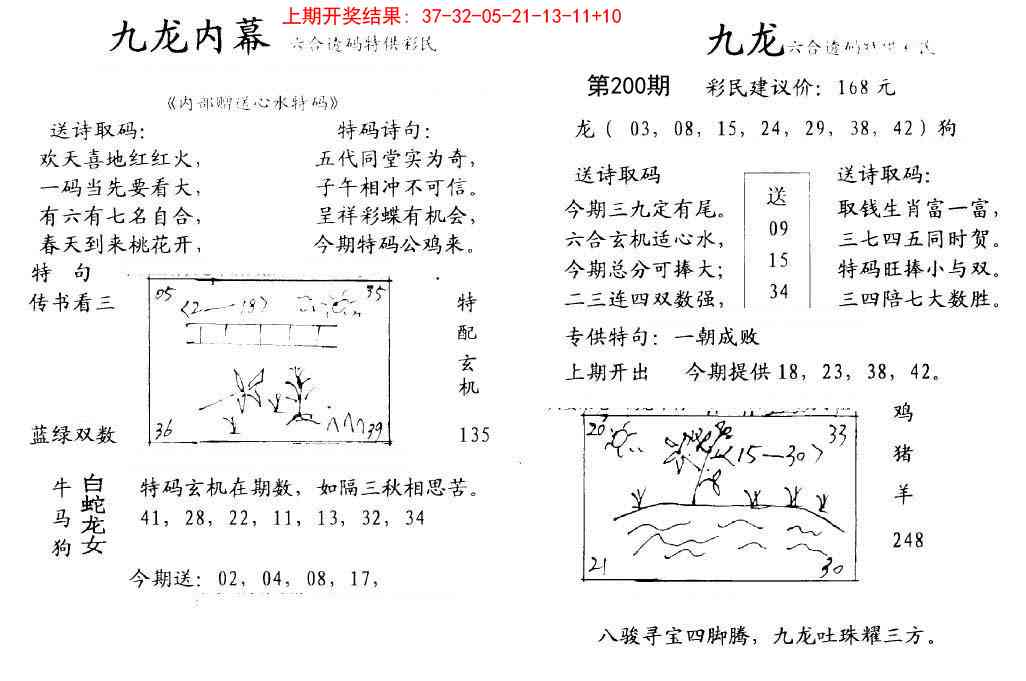 上期开奖结果：37-32-05-21-13-11+10
九龙内幕 六合透码特供彩民
《内部赠送心水特码》
送诗取码：
欢天喜地红红火，
一码当先要看大，
有六有七名自合，
春天到来桃花开，
特码诗句：
五代同堂实为奇，
子午相冲不可信。
呈祥彩蝶有机会，
今期特码公鸡来。
特 句
传书看三
蓝绿双数
05
35
<2—18>
36
39
特
配
玄
机
135
牛
马
狗
白蛇龙女
特码玄机在期数，如隔三秋相思苦。
41，28，22，11，13，32，34
今期送：02，04，08，17，
九龙 六合透码特供彩民
第200期 彩民建议价：168元
龙（ 03，08，15，24，29，38，42）狗
送诗取码
今期三九定有尾。
六合玄机适心水，
今期总分可捧大；
二三连四双数强，
送
09
15
34
送诗取码：
取钱生肖富一富，
三七四五同时贺。
特码旺捧小与双。
三四陪七大数胜。
专供特句：一朝成败
上期开出 今期提供18，23，38，42。
20
33
<15—30>
21
30
鸡
猪
羊
248
八骏寻宝四脚腾，九龙吐珠耀三方。